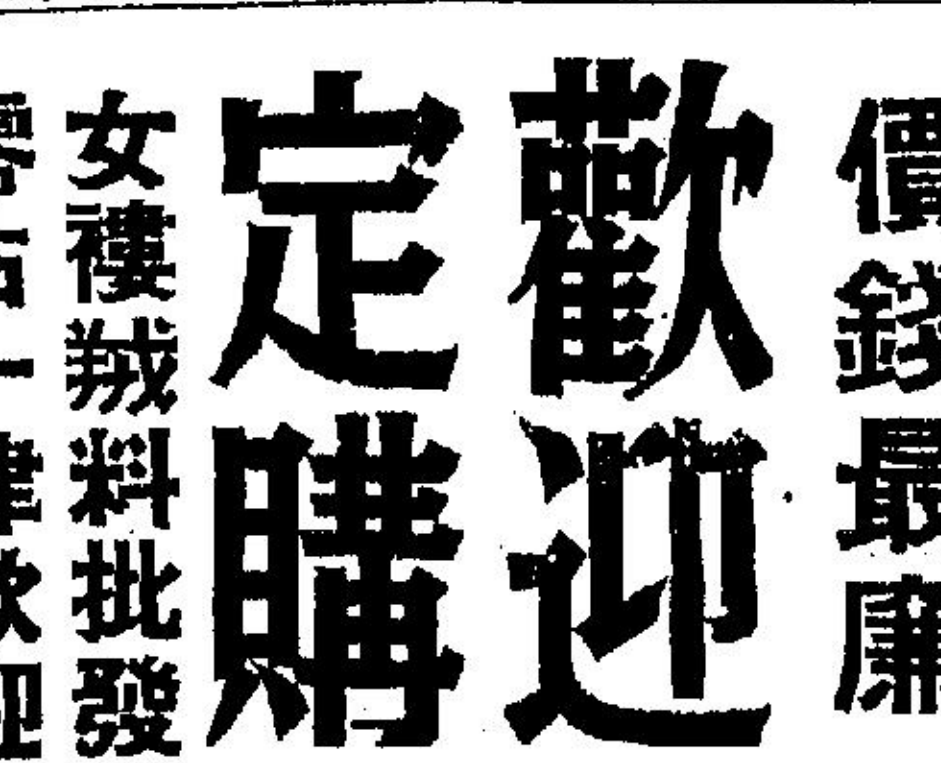 價錢最廉
歡迎
定購
女褸羢料批發
一律歡迎